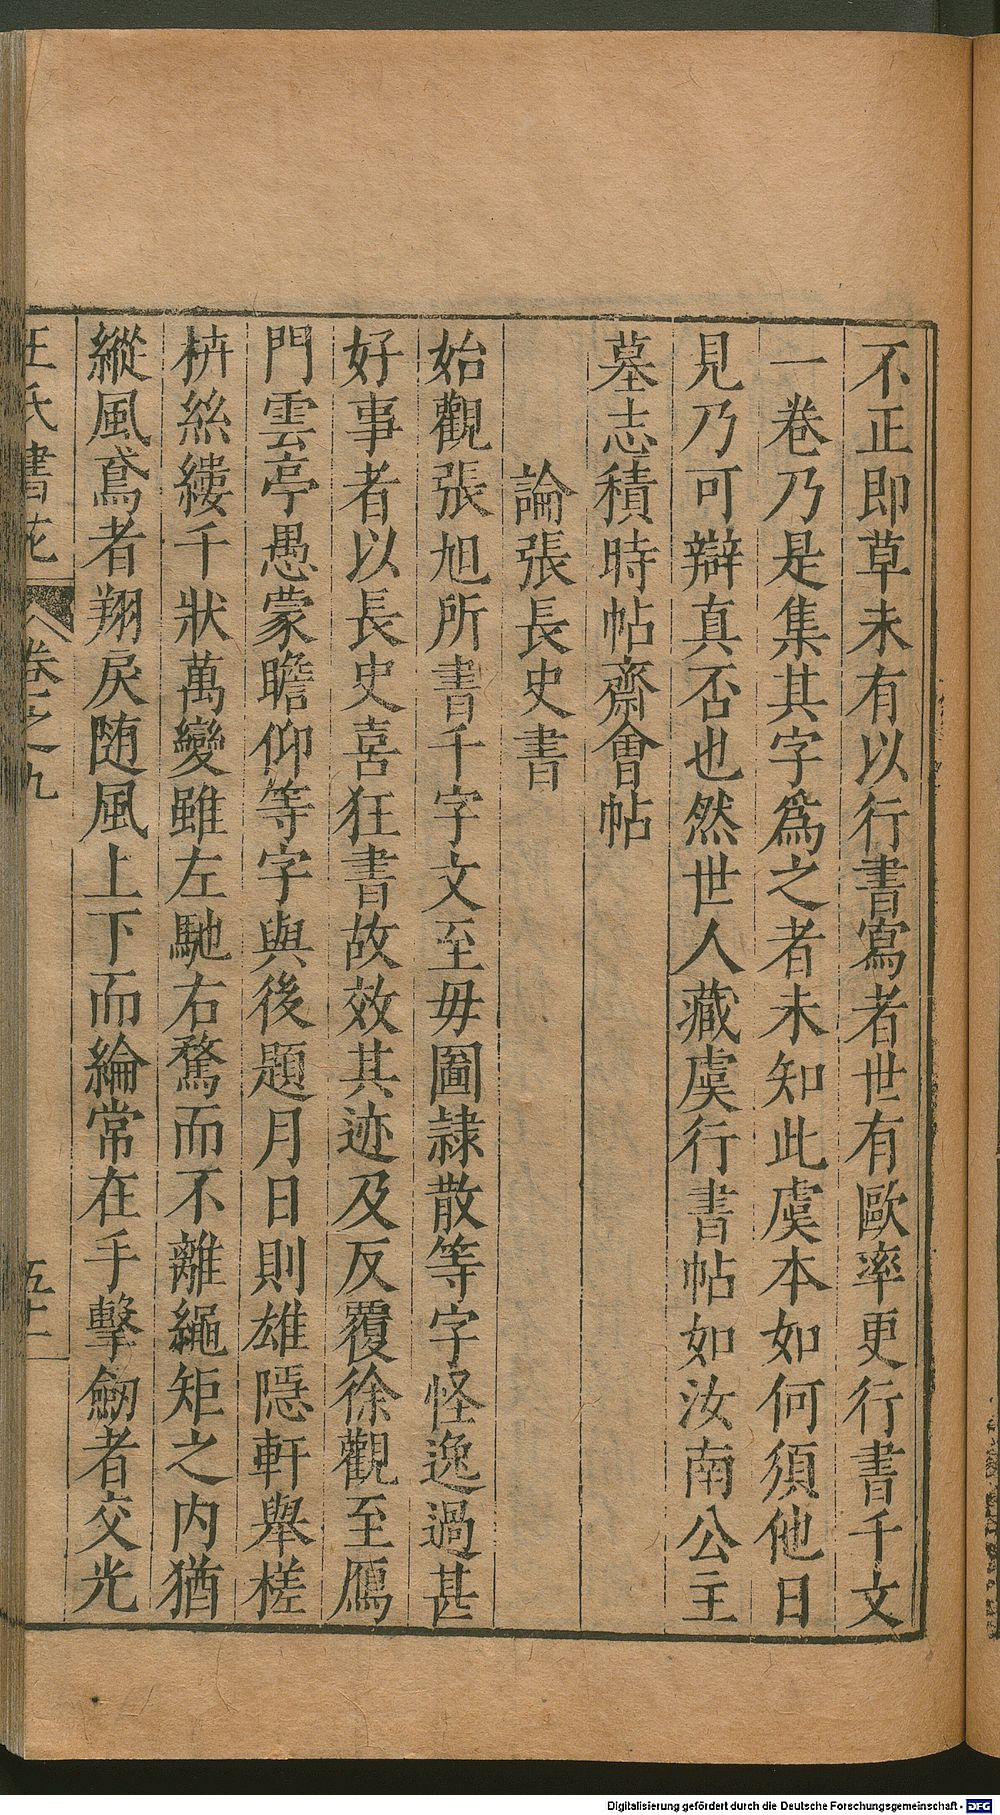 不正即草未有以行書寫者世有歐率更行書千文
一卷乃是集其字爲之者未知此虞本如何須他日
見乃可辯真否也然世人藏虞行書帖如汝南公主
墓志積時帖齋會帖
論張長史書
始觀張旭所書千字文至毋圖隷散等字怪逸過甚
好事者以長史喜狂書故效其迹及反覆徐觀至鴈
門雲亭愚蒙瞻仰等字與後題月日則雄隱軒舉槎
枿絲縷千狀萬變雖左馳右騖而不離繩矩之内猶
縱風鳶者翔戾随風上下而綸常在手擊劒者交光
王氏書苑 卷之九 五十二
Digitalisierung gefördert durch die Deutsche Forschungsgemeinschaft - DFG